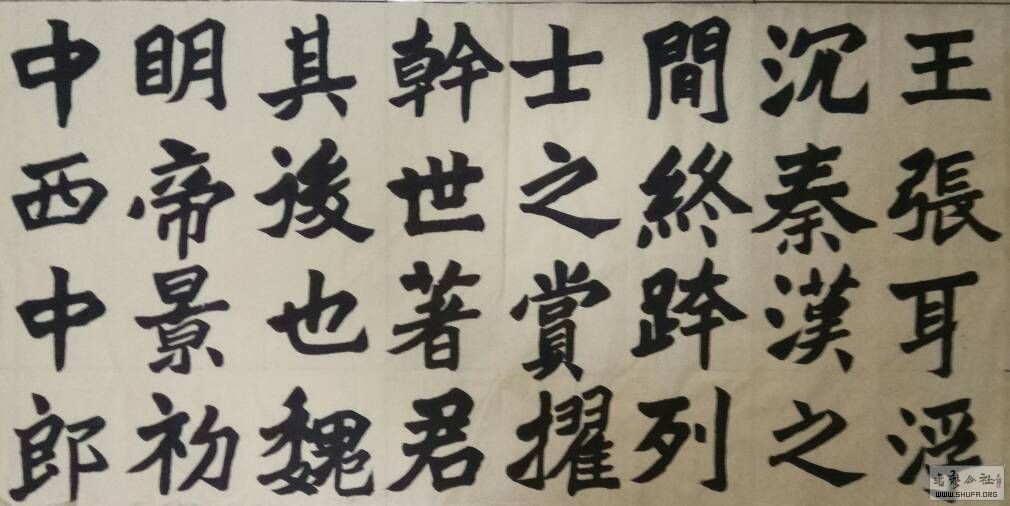 王張耳浮
沉秦漢之
間終跨列
士之賞擢
幹世著君
其後也魏
眀帝景初
中西中郎
WWW.SHUFA.ORG